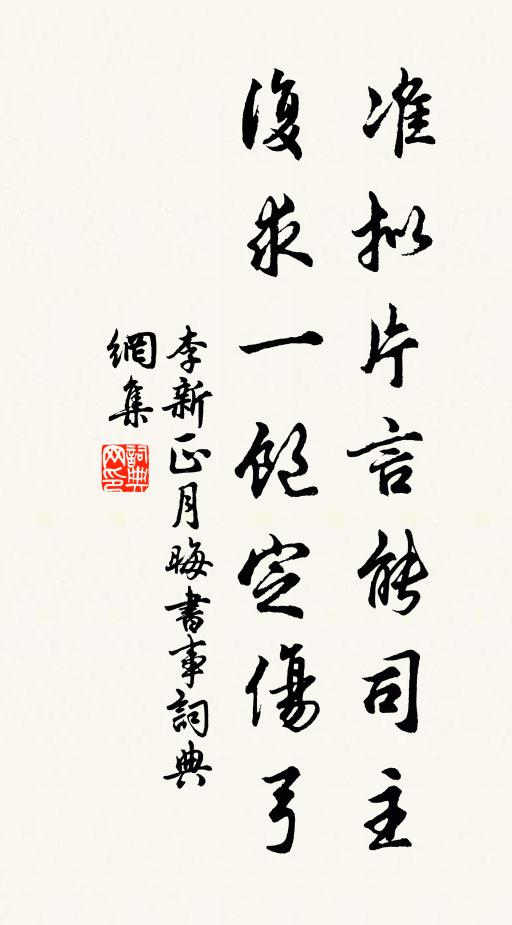 准拟片言能司主
復求一飽定傷弓
李新正月晦書事詞典
網集
詞典
网印